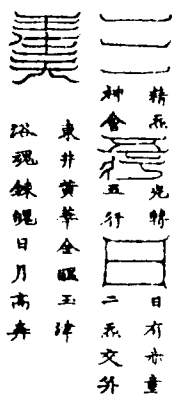 精炁轉
日有赤童
神會五行
二炁交外
東井黃華金醞玉津
浴魂鍊魄日月高奔